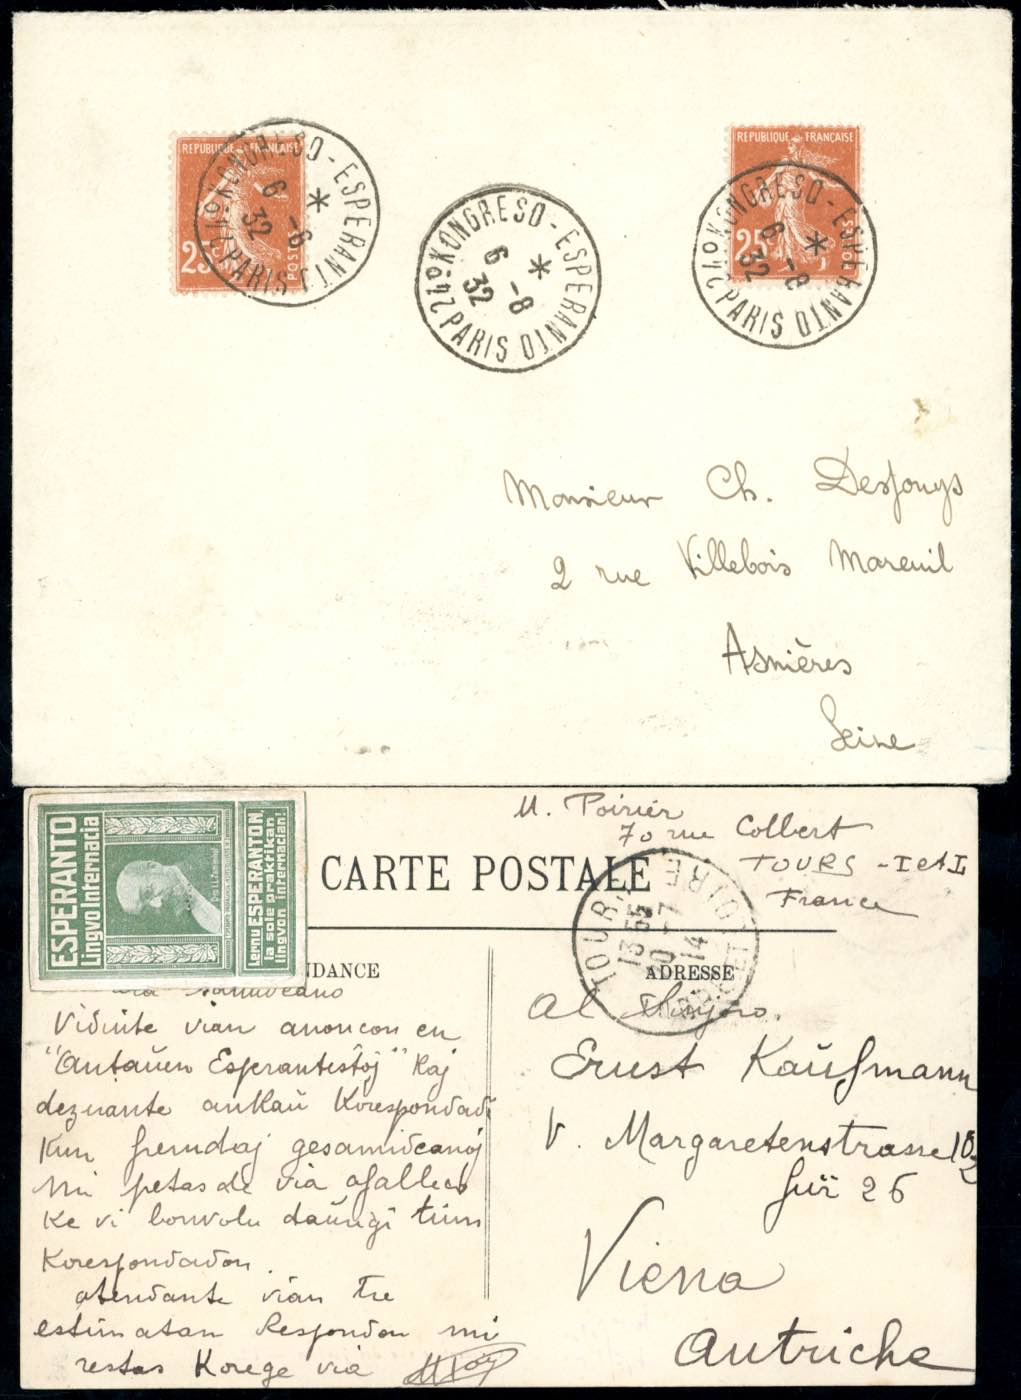 REPUBLIQUE FRANÇAISE
25
POSTES
24º KONGRESO - ESPERANTO
PARIS
6 - 8
32
24º KONGRESO - ESPERANTO
PARIS
6 - 8
32
REPUBLIQUE FRANÇAISE
25
POSTES
24º KONGRESO - ESPERANTO
PARIS
6 - 8
32
Monsieur Ch. Desjouys
2 rue Villebois Mareuil
Asnières
Seine
ESPERANTO
Lingvo Internacia
Dro L.L. Zamenhof
Lernu ESPERANTON,
la sole praktikan
lingvon internacian!
M. Poirier
70 rue Colbert
TOURS - I et L
France
CARTE POSTALE
TOURS
13 55
14
NDANCE
ADRESSE
Samideano
Vidinte vian anoncon en
"Antaŭen Esperantistoj" Kaj
dezirante ankaŭ Korespondadi
Kun fremdaj gesamideanoj
Mi petas de via
Ke vi bonvolu daŭrigi tium
Korespondadon.
atendante vian tre
estimatan Respondon mi
restas Korege via
Al Sinjoro.
Ernst Kaŭfmann
V. Margaretenstrasse 102
tür 26
Viena
Autriche